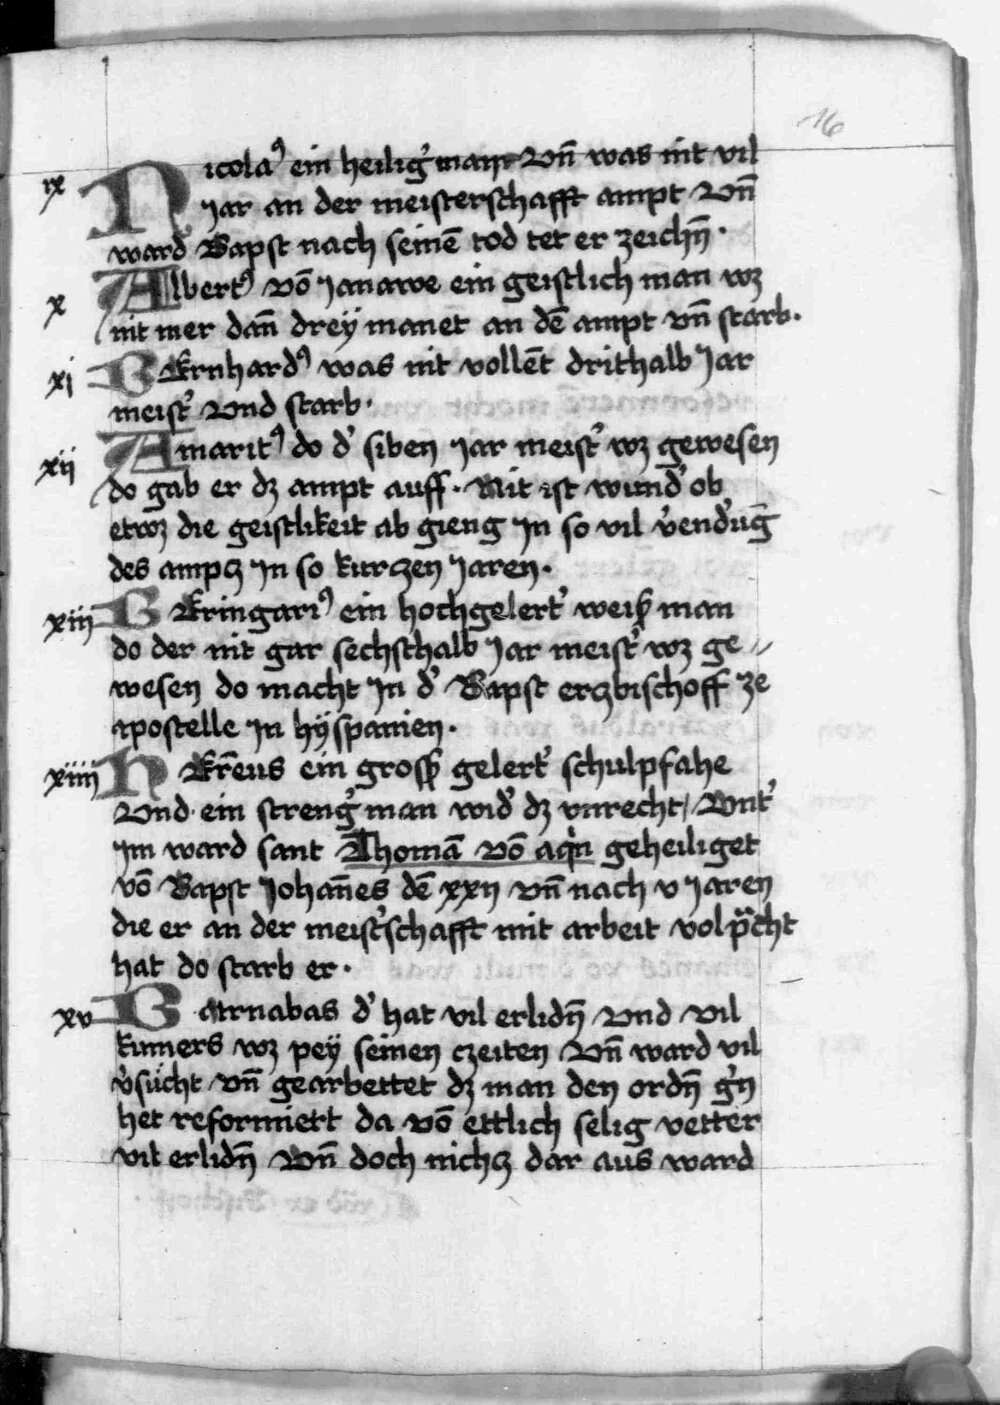 16
ix Nicolaꝰ ein heilig' man vn̄ was nit vil
jar an der meisterschafft ampt vn̄
ward Bapst nach seinē tod tet er zeichn̄ ·
x Albertꝰ vō janawe ein geistlich man wz
nit mer dan̄ dreÿ manet an dē ampt vn̄ starb ·
xi Bernhardꝰ was nit vollēt drithalb jar
meist' vnd starb ·
xii Amaritꝰ do d' siben jar meist' wz gewesen
do gab er dz ampt auff · Mit ist wund' ob
etwz die geistlikeit ab gieng jn so vil v'end'ūg
des ampcz jn so kurczen jaren ·
xiii Beringariꝰ ein hochgelert' weiß man
do der nit gar sechsthalb jar meist' wz ge〃
wesen do macht jn d' Bapst erczbischoff ze
apostelle jn hÿspanien ·
xiiii Herēus ein groſß gelert' schulpfahe
vnd ein streng' man wid' dz vnrecht / vnt'
jm ward sant Thomā vō aq'n geheiliget
vō Bapst johan̄es dē xxij vn̄ nach v jaren
die er an der meist'schafft mit arbeit volp̄cht
hat do starb er ·
xv Barnabas d' hat vil erlidn̄ vnd vil
kumers wz peÿ seinen czeiten vn̄ ward vil
v'sucht vn̄ gearbeitet dz man den ordn̄ g'n
het reformiett da vō ettlich selig vetter
vil erlidn̄ vn̄ doch nichcz dar aus ward